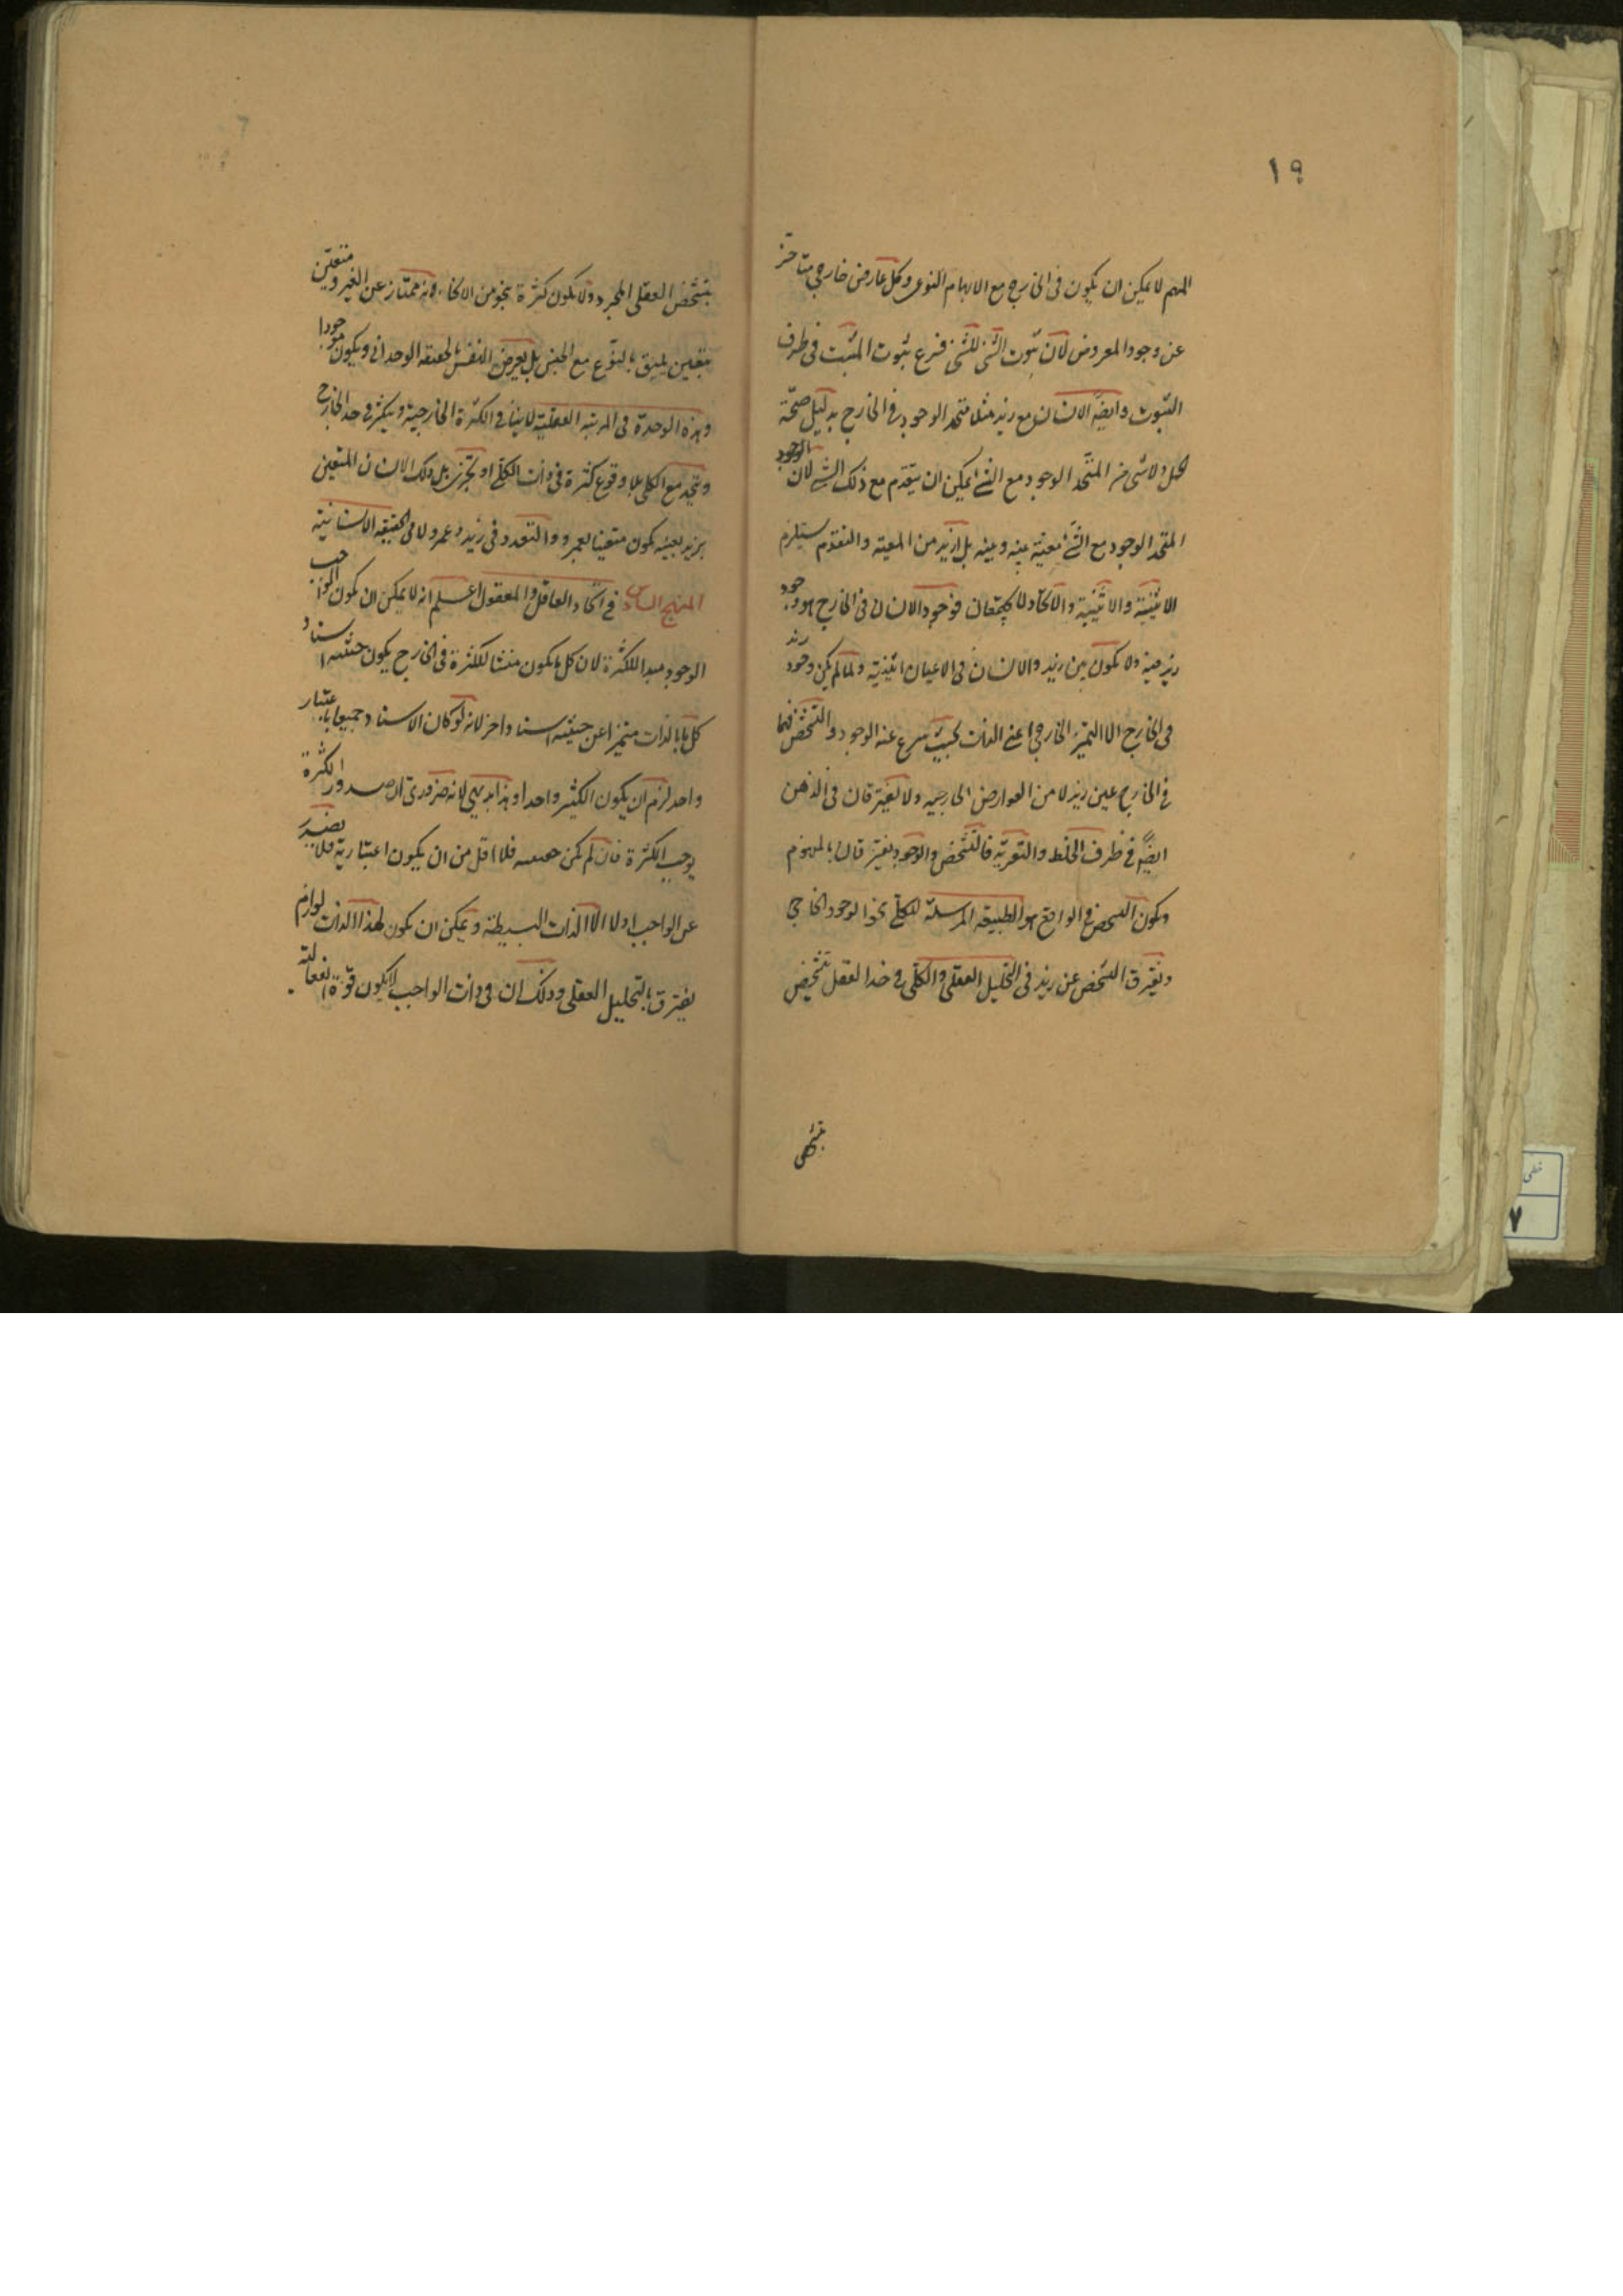 ١٩
المبهم لا يمكن ان يكون فى الخارج مع الابهام النوعى وكل عارض خارجى متاخر
عن وجود المعروض لان ثبوت الشئ للشئ فرع ثبوت المثبت فى ظرف
الثبوت وايضا الانسان مع زيد مثلا متحد الوجود فى الخارج بدليل صحة
الحمل ولا شئ من المتحد الوجود مع الشئ يمكن ان يتقدم مع ذلك الشئ لان الوجود
المتحد الوجود مع الشئ معيته بينه وبينه بل ازيد من المعية والتقدم يستلزم
الاثنينية والاثنينية والاتحاد لا يجتمعان فوجود الانسان فى الخارج هو وجود
زيد فيه ولا يكون بين زيد والانسان فى الاعيان اثنينية ولما لم يكن وجود زيد
فى الخارج الا التميز الخارجى اعنى الذات بحيث عنه الوجود والتشخص فهما
فى الخارج عين زيد لا من العوارض الخارجيه ولا يفترقان فى الذهن
ايضا فى ظرف الخلط والتعرية فالتشخص والوجود يفترقان بالمفهوم
ويكون التشخص فى الواقع هو الطبيعه المرسلة للكلى نحو الوجود الخارجى
ويفترق التشخص عن زيد فى التحليل العقلى والكلى فى حد العقل تشخص
بتشخص العقلى المجرد ولا يكون كثرة بنحو من الانحاء وانه ممتاز عن الغير ومتعين
بتعين يليق بالنوع مع الجنس بل يعرض النفس الحقيقه الوحدانى ويكون موجودا
وهذه الوحدة فى المرتبه العقلية لا ينافى الكثرة الخارجية ويتكثر فى حد الخارج
ويتحد مع الكلى بلا وقوع كثرة فى ذات الكلى او تجزى بل ذلك الانسان المتعين
بزيد بعينه يكون متعينا بعمرو والتعدد فى زيد وعمرو لا فى الحقيقه الانسانية
المنهج السادس فى اتحاد العاقل والمعقول اعلم انه لا يمكن ان يكون الواجب
الوجود مبدا للكثرة لان كل ما يكون منشا للكثرة فى الخارج يكون حيثيه استناد
كل ما بالذات متميزا عن حيثيه استناد اخر لانه لو كان الاستناد جميعا باعتبار
واحد لزم ان يكون الكثير واحدا وهذا بديهى لانه ضرورى ان صدور الكثرة
يوجب الكثرة فان لم يكن حقيقيه فلا اقل من ان يكون اعتبارية فلا يصدر
عن الواجب اولا الا الذات البسيطة ويمكن ان يكون لهذا الذات لوازم
يفترق بالتحليل العقلى وذلك ان فى ذات الواجب لا يكون قوة انفعالية